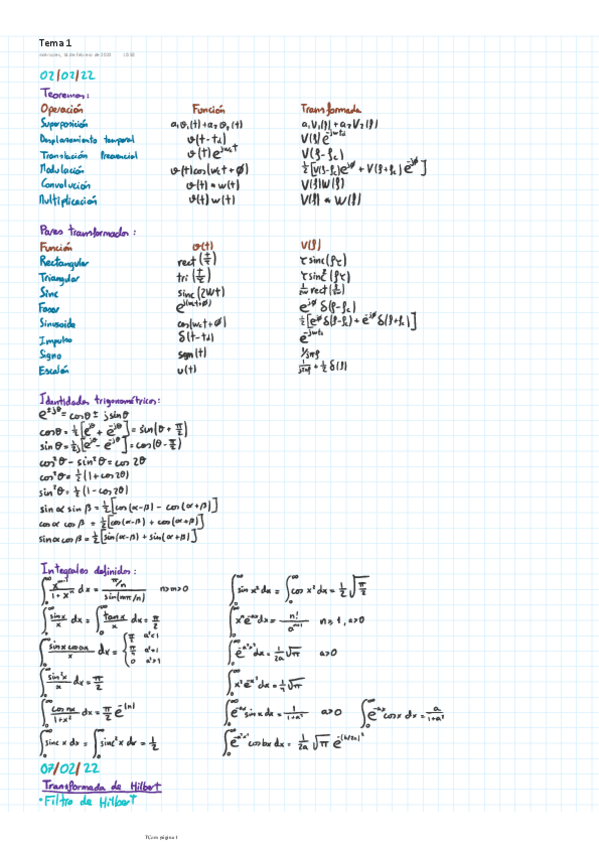 Tema 1
miércoles, 16 de febrero de 2022
02/02/22
Teoremas:
Operación Función Transformada
Superposición a₁v₁(t)+a₂v₂(t) a₁V₁(f)+a₂V₂(f)
Desplazamiento temporal v(t-t_d) V(f)e^{-jωt_d}
Translación Frecuencial v(t)e^{jω_c t} V(f-f_c)
Modulación v(t)cos(ω_c t+φ) ½[V(f-f_c)e^{jφ} + V(f+f_c)e^{-jφ}]
Convolución v(t) * w(t) V(f)W(f)
Multiplicación v(t) w(t) V(f) * W(f)
Pares transformados:
Función v(t) V(f)
Rectangular rect(t/τ) τ sinc(fτ)
Triangular tri(t/τ) τ sinc²(fτ)
Sinc sinc(2Wt) 1/2W rect(f/2W)
Fasor e^{j(ω_c t+φ)} e^{jφ} δ(f-f_c)
Sinusoide cos(ω_c t+φ) ½[e^{jφ} δ(f-f_c) + e^{-jφ} δ(f+f_c)]
Impulso δ(t-t_d) e^{-jωt_d}
Signo sgn(t) 1/jπf
Escalón u(t) 1/j2πf + ½ δ(f)
Identidades trigonométricas:
e^{±jθ} = cosθ ± j sinθ
cosθ = ½[e^{jθ} + e^{-jθ}] = sin(θ + π/2)
sinθ = 1/2j[e^{jθ} - e^{-jθ}] = cos(θ - π/2)
cos²θ - sin²θ = cos 2θ
cos²θ = ½(1+cos2θ)
sin²θ = ½(1-cos2θ)
sin α sin β = ½[cos(α-β) - cos(α+β)]
cos α cos β = ½[cos(α-β) + cos(α+β)]
sin α cos β = ½[sin(α-β) + sin(α+β)]
Integrales definidos:
∫₀^∞ x^{m-1}/(1+xⁿ) dx = (π/n)/sin(mπ/n) n>m>0 ∫₀^∞ sin x² dx = ∫₀^∞ cos x² dx = ½√(π/2)
∫₀^∞ sinx/x dx = ∫₀^∞ tanx/x dx = π/2 ∫₀^∞ xⁿe^{-ax}dx = n!/a^{n+1} n≥1, a>0
∫₀^∞ sinx cosax/x dx = { π/2 a²<1 π/4 a²=1 0 a²>1 ∫₀^∞ e^{-a²x²}dx = 1/2a √π a>0
∫₀^∞ sin²x/x dx = π/2 ∫₀^∞ x²e^{-x²}dx = ¼√π
∫₀^∞ cosnx/(1+x²) dx = π/2 e^{-|n|} ∫₀^∞ e^{-ax} sinx dx = 1/(1+a²) a>0 ∫₀^∞ e^{-ax} cosx dx = a/(1+a²)
∫₀^∞ sinc x dx = ∫₀^∞ sinc²x dx = ½ ∫₀^∞ e^{-a²x²} cosbx dx = 1/2a √π e^{-(b/2a)²}
07/02/22
Transformada de Hilbert
• Filtro de Hilbert
TCom página 1